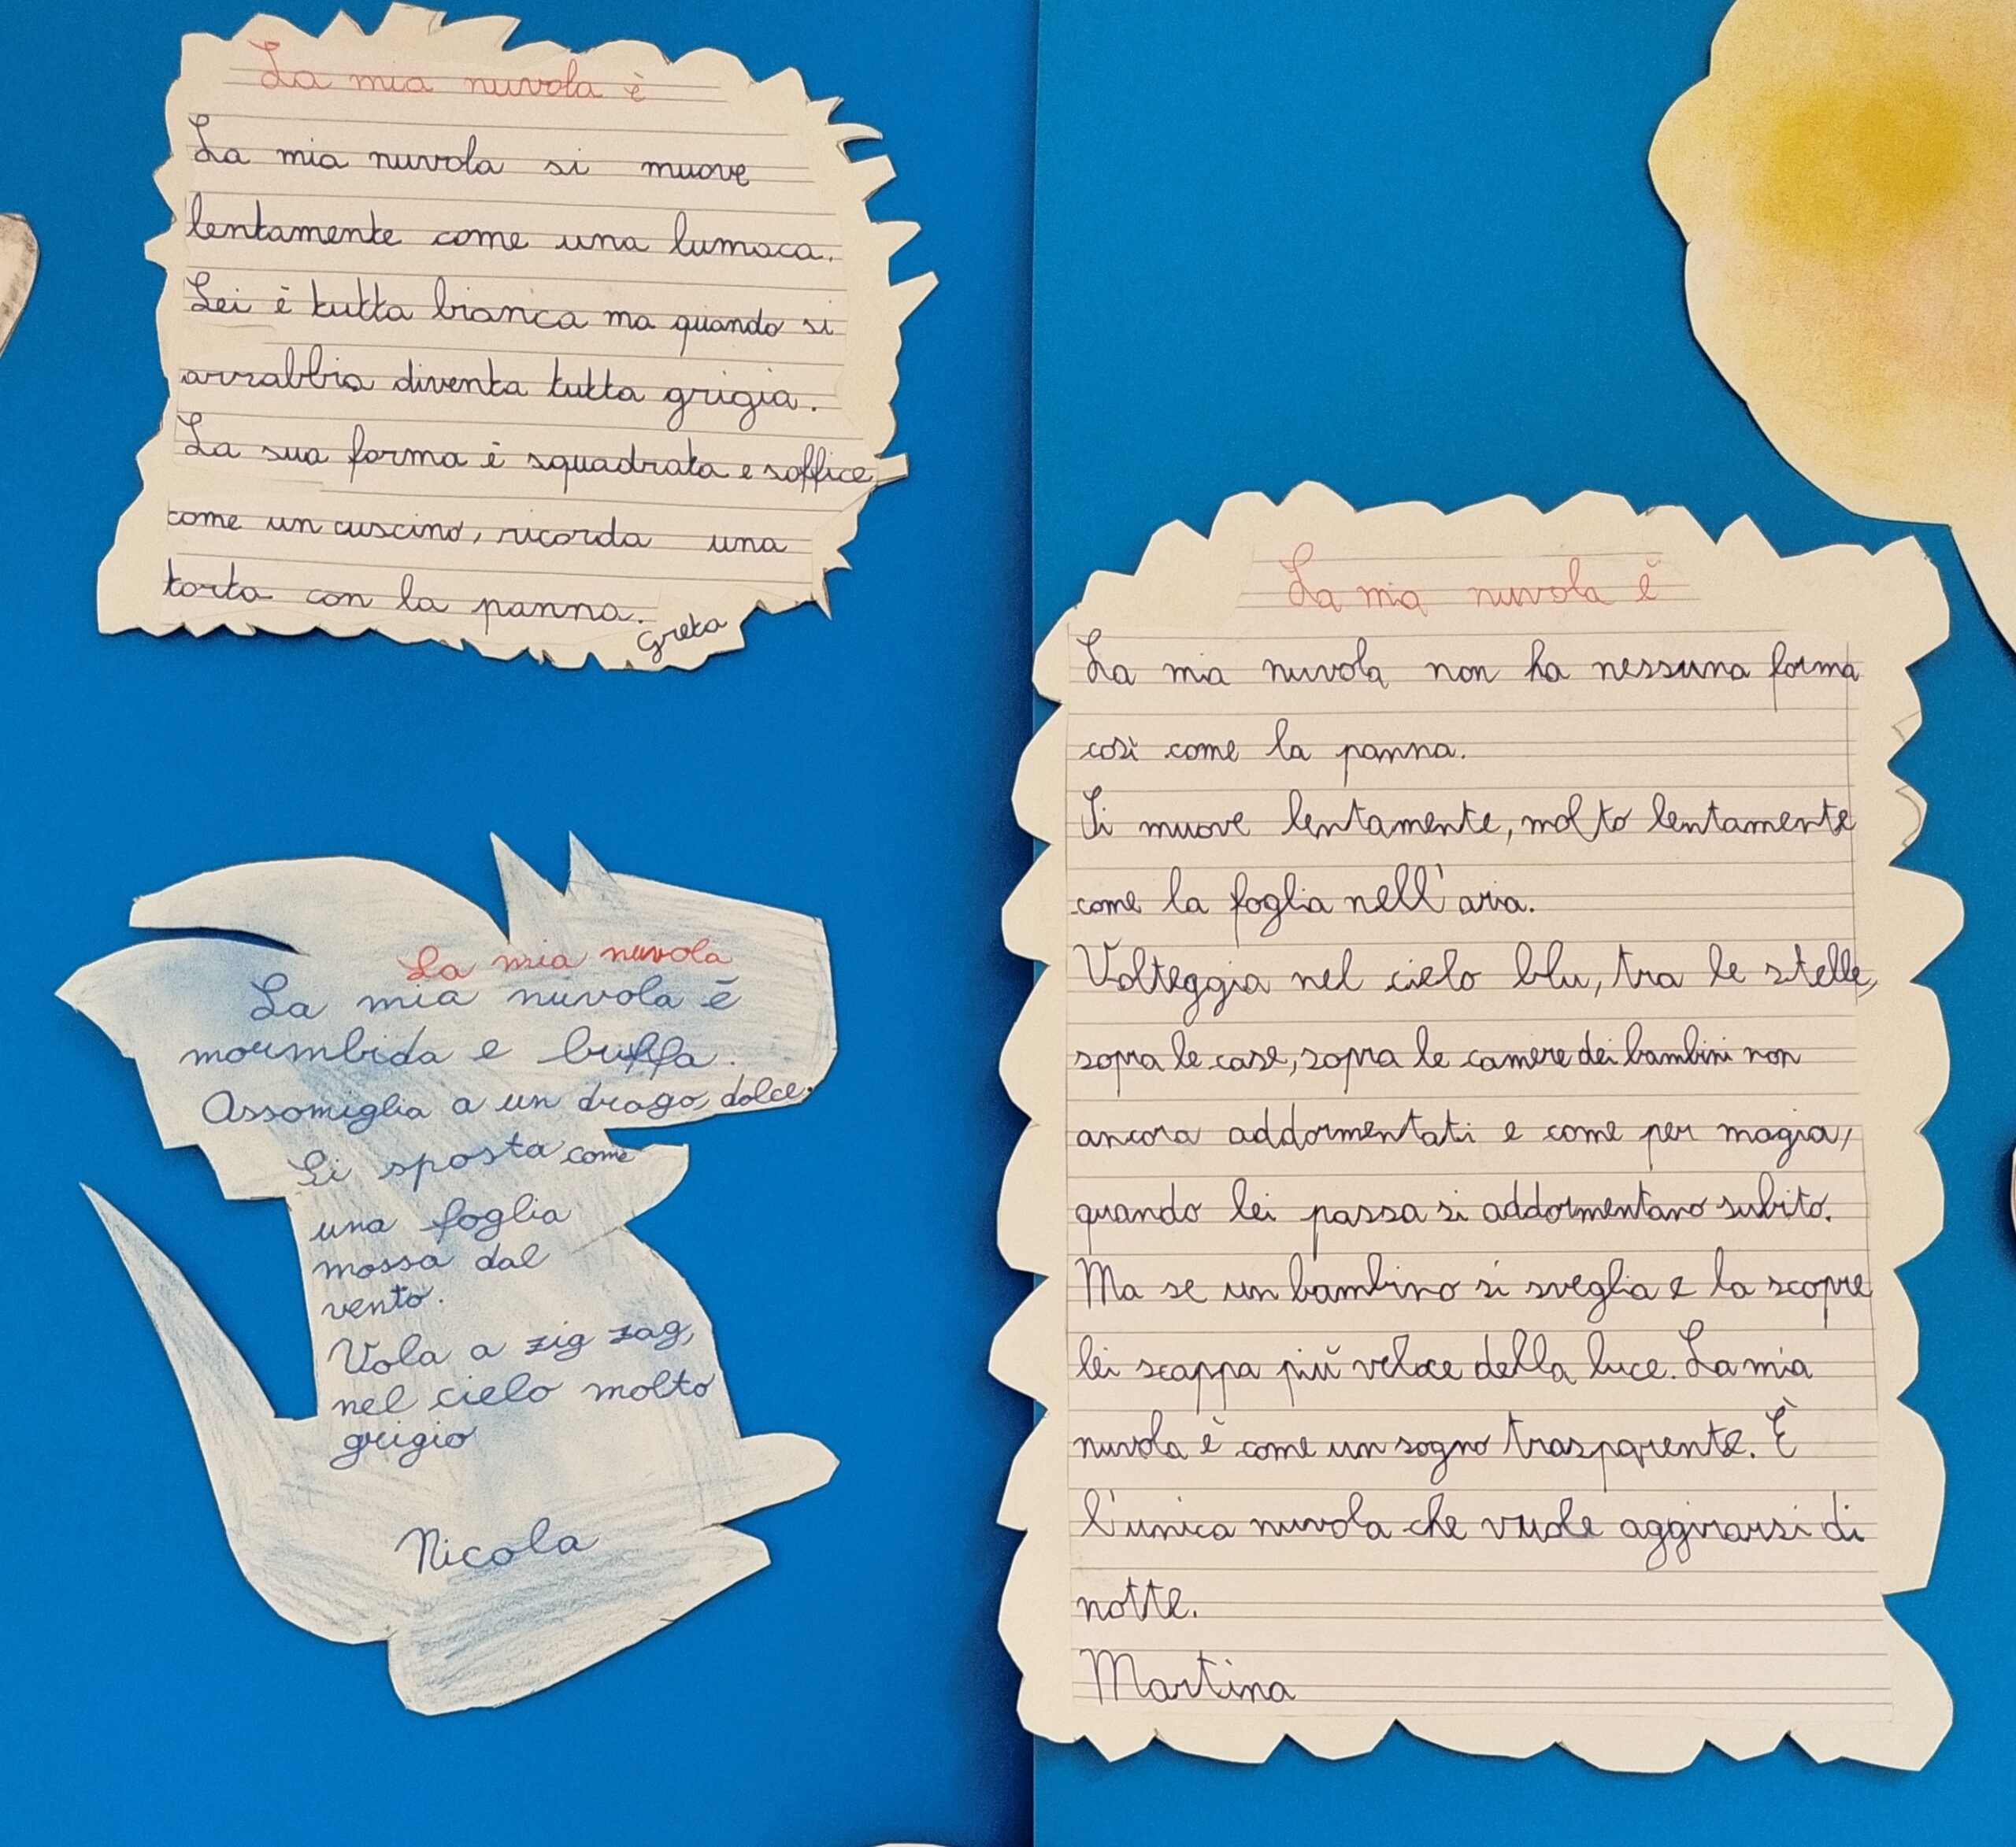 La mia nuvola è
La mia nuvola si muove
lentamente come una lumaca.
Lei è tutta bianca ma quando si
arrabbia diventa tutta grigia.
La sua forma è squadrata e soffice
come un cuscino, ricorda una
torta con la panna.
Greta
La mia nuvola
La mia nuvola è
mormbida e buffa.
Assomiglia a un drago, dolce.
Si sposta come
una foglia
mossa dal
vento.
Vola a zig zag,
nel cielo molto
grigio
Nicola
La mia nuvola è
La mia nuvola non ha nessuna forma
così come la panna.
Si muove lentamente, molto lentamente
come la foglia nell'aria.
Volteggia nel cielo blu, tra le stelle,
sopra le case, sopra le camere dei bambini non
ancora addormentati e come per magia,
quando lei passa si addormentano subito.
Ma se un bambino si sveglia e la scopre
lei scappa più veloce della luce. La mia
nuvola è come un sogno trasparente. È
l'unica nuvola che vuole aggirarsi di
notte.
Martina